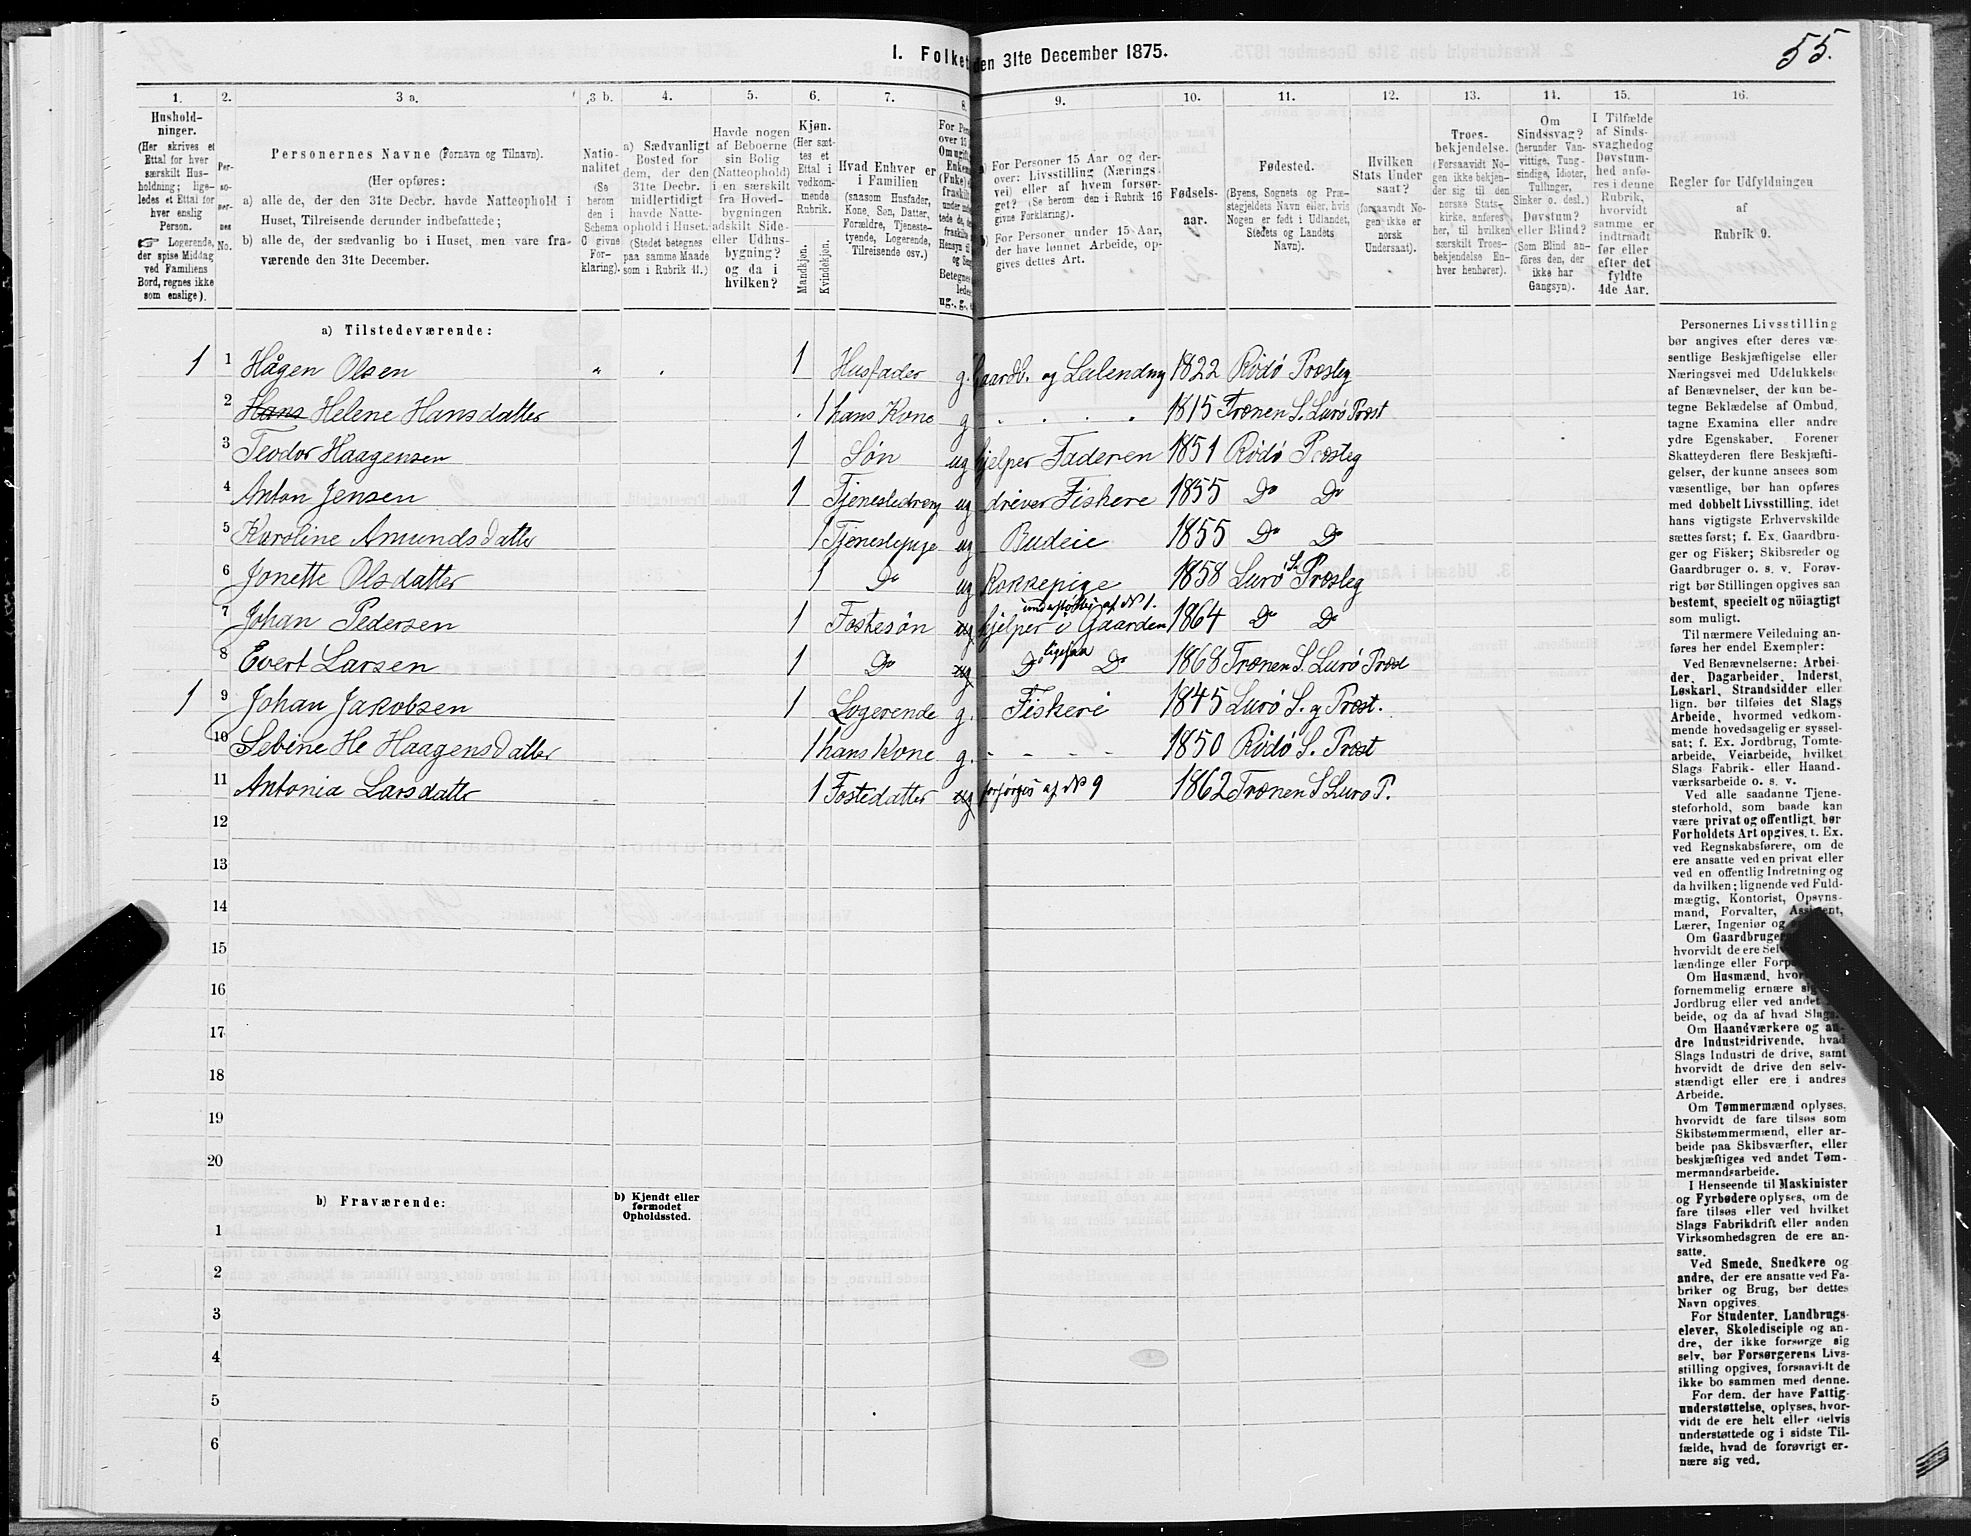 I. Folket den 31te December 1875.
55.
1. 2. 3 a. 3 b. 4. 5. 6. 7. 8. 9. 10. 11. 12. 13. 14. 15. 16.
Hushold-
ninger.
(Her skrives et
Ettal for hver
særskilt Hus-
holdning; lige-
ledes et Ettal for
hver enslig
Person.
☞ Logerende,
der spise Middag
ved Familiens
Bord, regnes ikke
som enslige).
Per-
so-
ner-
nes
No.
Personernes Navne (Fornavn og Tilnavn).
(Her opføres:
a) alle de, der den 31te Decbr. havde Natteophold i
Huset, Tilreisende derunder indbefattede;
b) alle de, der sædvanlig bo i Huset, men vare fra-
værende den 31te December.
Natio-
nalitet
(Se
herom
den i
Schema
C givne
For-
klaring).
a) Sædvanligt
Bosted for
dem, der den
31te Decbr.
midlertidigt
havde Natte-
ophold i Huset.
(Stedet betegnes
paa samme Maade
som i Rubrik 11.)
Havde nogen
af Beboerne
sin Bolig
(Natteophold)
i en særskilt
fra Hoved-
bygningen
adskilt Side-
eller Udhus-
bygning?
og da i
hvilken?
Kjøn.
(Her sæt-
tes et
Ettal i
vedkom-
mende
Rubrik.
Mandkjøn.
Kvindekjøn.
Hvad Enhver er
i Familien
(saasom Husfader,
Kone, Søn, Datter,
Forældre, Tjeneste-
tyende, Logerende,
Tilreisende osv.)
a) For Personer 15 Aar og der-
over: Livsstilling (Nærings-
vei) eller af hvem forsør-
get? (Se herom den i Rubrik 16
givne Forklaring).
b) For Personer under 15 Aar,
der have lønnet Arbeide, op-
gives dettes Art.
Fødsels-
aar.
Fødested.
(Byens, Sognets og Præ-
stegjeldets Navn eller, hvis
Nogen er født i Udlandet,
Stedets og Landets
Navn).
Hvilken
Stats Under
saat?
(forsaavidt No-
gen ikke er
norsk
Undersaat).
Troes-
bekjendelse.
(Forsaavidt No-
gen ikke bekjen-
der sig til den
norske Stats-
kirke, anføres
her, til hvilken
særskilt Troes-
bekjendelse En-
hver henhører).
Om
Sindssvag?
(herunder Van-
vittige, Tung-
sindige, Idioter,
Tullinger,
Sinker o. desl.)
Døvstum?
eller Blind?
(Som Blind an-
føres den, der
ikke har
Gangsyn).
I Tilfælde
af Sinds-
svaghed og
Døvstum-
hed anfø-
res i denne
Rubrik,
hvorvidt
samme er
indtraadt
før eller
efter det
fyldte
4de Aar.
Regler for Udfyldningen
af
Rubrik 9.
a) Tilstedeværende:
1 1 Hågen Olsen 1 Husfader g. Gaardb. og 1822 Rödö Præsteg
2 Hans Helene Hansdatter 1 hans Kone g 1815 Trænen S. Lurö Præst
3 Teodor Haagensen 1 Søn ug hjelper Faderen 1851 Rödö Præsteg
4 Anton Jensen 1 Tjenestedreng ug drever Fiskere 1855 Do Do
5 Karoline Amundsdatte 1 Tjenestepige ug Budeie 1855 Do Do
6 Jonette Olsdatter 1 Do ug Kokkepige 1858 Lurö S. Præsteg
7 Johan Pedersen 1 Fostesøn ug hjelper i Gaarden af No 1. 1864 Do Do
8 Evert Larsen 1 Do ug Do ligesaa Do 1868 Trænen S. Lurö Præst
1 9 Johan Jakobsen 1 Logerende g. Fiskeri 1845 Lurö S. og Præst.
10 Sebine He Haagensdatter 1 hans Kone g. 1850 Rödö S. Præst
11 Antonia Larsdatter 1 Fostedatter ug forsørges af No 9 1862 Trænen S Lurö P.
12
13
14
15
16
17
18
19
20
b) Fraværende:
b) Kjendt eller
formodet
Opholdssted.
1
2
3
4
5
6
Personernes Livsstilling
bør angives efter deres væ-
sentlige Beskjæftigelse eller
Næringsvei med Udelukkelse
af Benævnelser, der kun be-
tegne Beklædelse af Ombud,
tagne Examina eller andre
ydre Egenskaber. Forener
Skatteyderen flere Beskjæfti-
gelser, der kunne ansees som
væsentlige, bør han opføres
med dobbelt Livsstilling, idet
hans vigtigste Erhvervskilde
sættes først; f. Ex. Gaardbru-
ger og Fisker; Skibsreder og
Gaardbruger o. s. v. Forøv-
rigt bør Stillingen opgives saa
bestemt, specielt og nöiagtigt
som muligt.
Til nærmere Veiledning an-
føres her endel Exempler:
Ved Benævnelserne: Arbei-
der, Dagarbeider, Inderst,
Løskarl, Strandsidder eller
lign. bør tilføies det Slags
Arbeide, hvormed vedkom-
mende hovedsagelig er syssel-
sat; f. Ex. Jordbrug, Tomte-
arbeide, Veiarbeide, hvilket
Slags Fabrik- eller Haand-
værksarbeide o. s. v.
Ved alle saadanne Tjene-
steforhold, som baade kan
være privat og offentligt, bør
Forholdets Art opgives, t. Ex.
ved Regnskabsførere, om de
ere ansatte ved en privat eller
ved en offentlig Indretning og
da hvilken; lignende ved Fuld-
mægtig, Kontorist, Opsyns-
mand, Forvalter, Assistent,
Lærer, Ingeniør og
Om Gaardbrugere
hvorvidt de ere Sel
lændinge eller Forp
Om Husmænd, hvor
fornemmelig ernære sig
Jordbrug eller ved andet
beide, og da af hvad Slags.
Om Haandværkere og an-
dre Industridrivende, hvad
Slags Industri de drive, samt
hvorvidt de drive den selv-
stændigt eller ere i andres
Arbeide.
Om Tømmermænd oplyses,
hvorvidt de fare tilsøs som
Skibstømmermænd, eller ar-
beide paa Skibsværfter, eller
beskjæftiges ved andet Tøm-
mermandsarbeide.
I Henseende til Maskinister
og Fyrbødere oplyses, om de
fare tilsøs eller ved hvilket
Slags Fabrikdrift eller anden
Virksomhedsgren de ere an-
satte.
Ved Smede, Snedkere og
andre, der ere ansatte ved Fa-
briker og Brug, bør dettes
Navn opgives.
For Studenter, Landbrugs-
elever, Skoledisciple og an-
dre, der ikke forsørge sig
selv, bør Forsørgerens Livs-
stilling opgives, forsaavidt de
ikke bo sammen med denne.
For dem, der have Fattig-
understøttelse, oplyses, hvor-
vidt de ere helt eller delvis
understøttede og i sidste Til-
fælde, hvad de forøvrigt er-
nære sig ved.